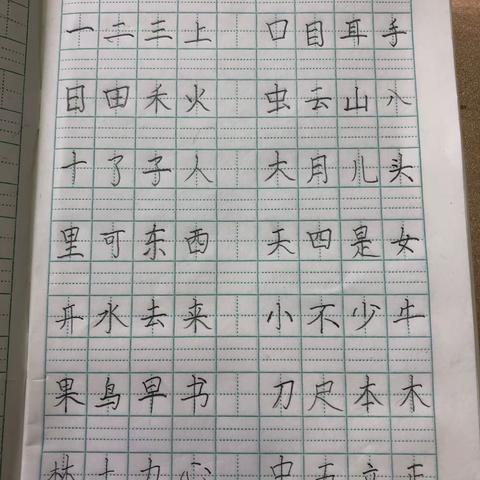 一二三上 口目耳手
日田禾火 虫云山八
十了子人 大月儿头
里可东西 天四是女
开水去来 小不少牛
果鸟早书 刀尺本木
林土力心 中五立正